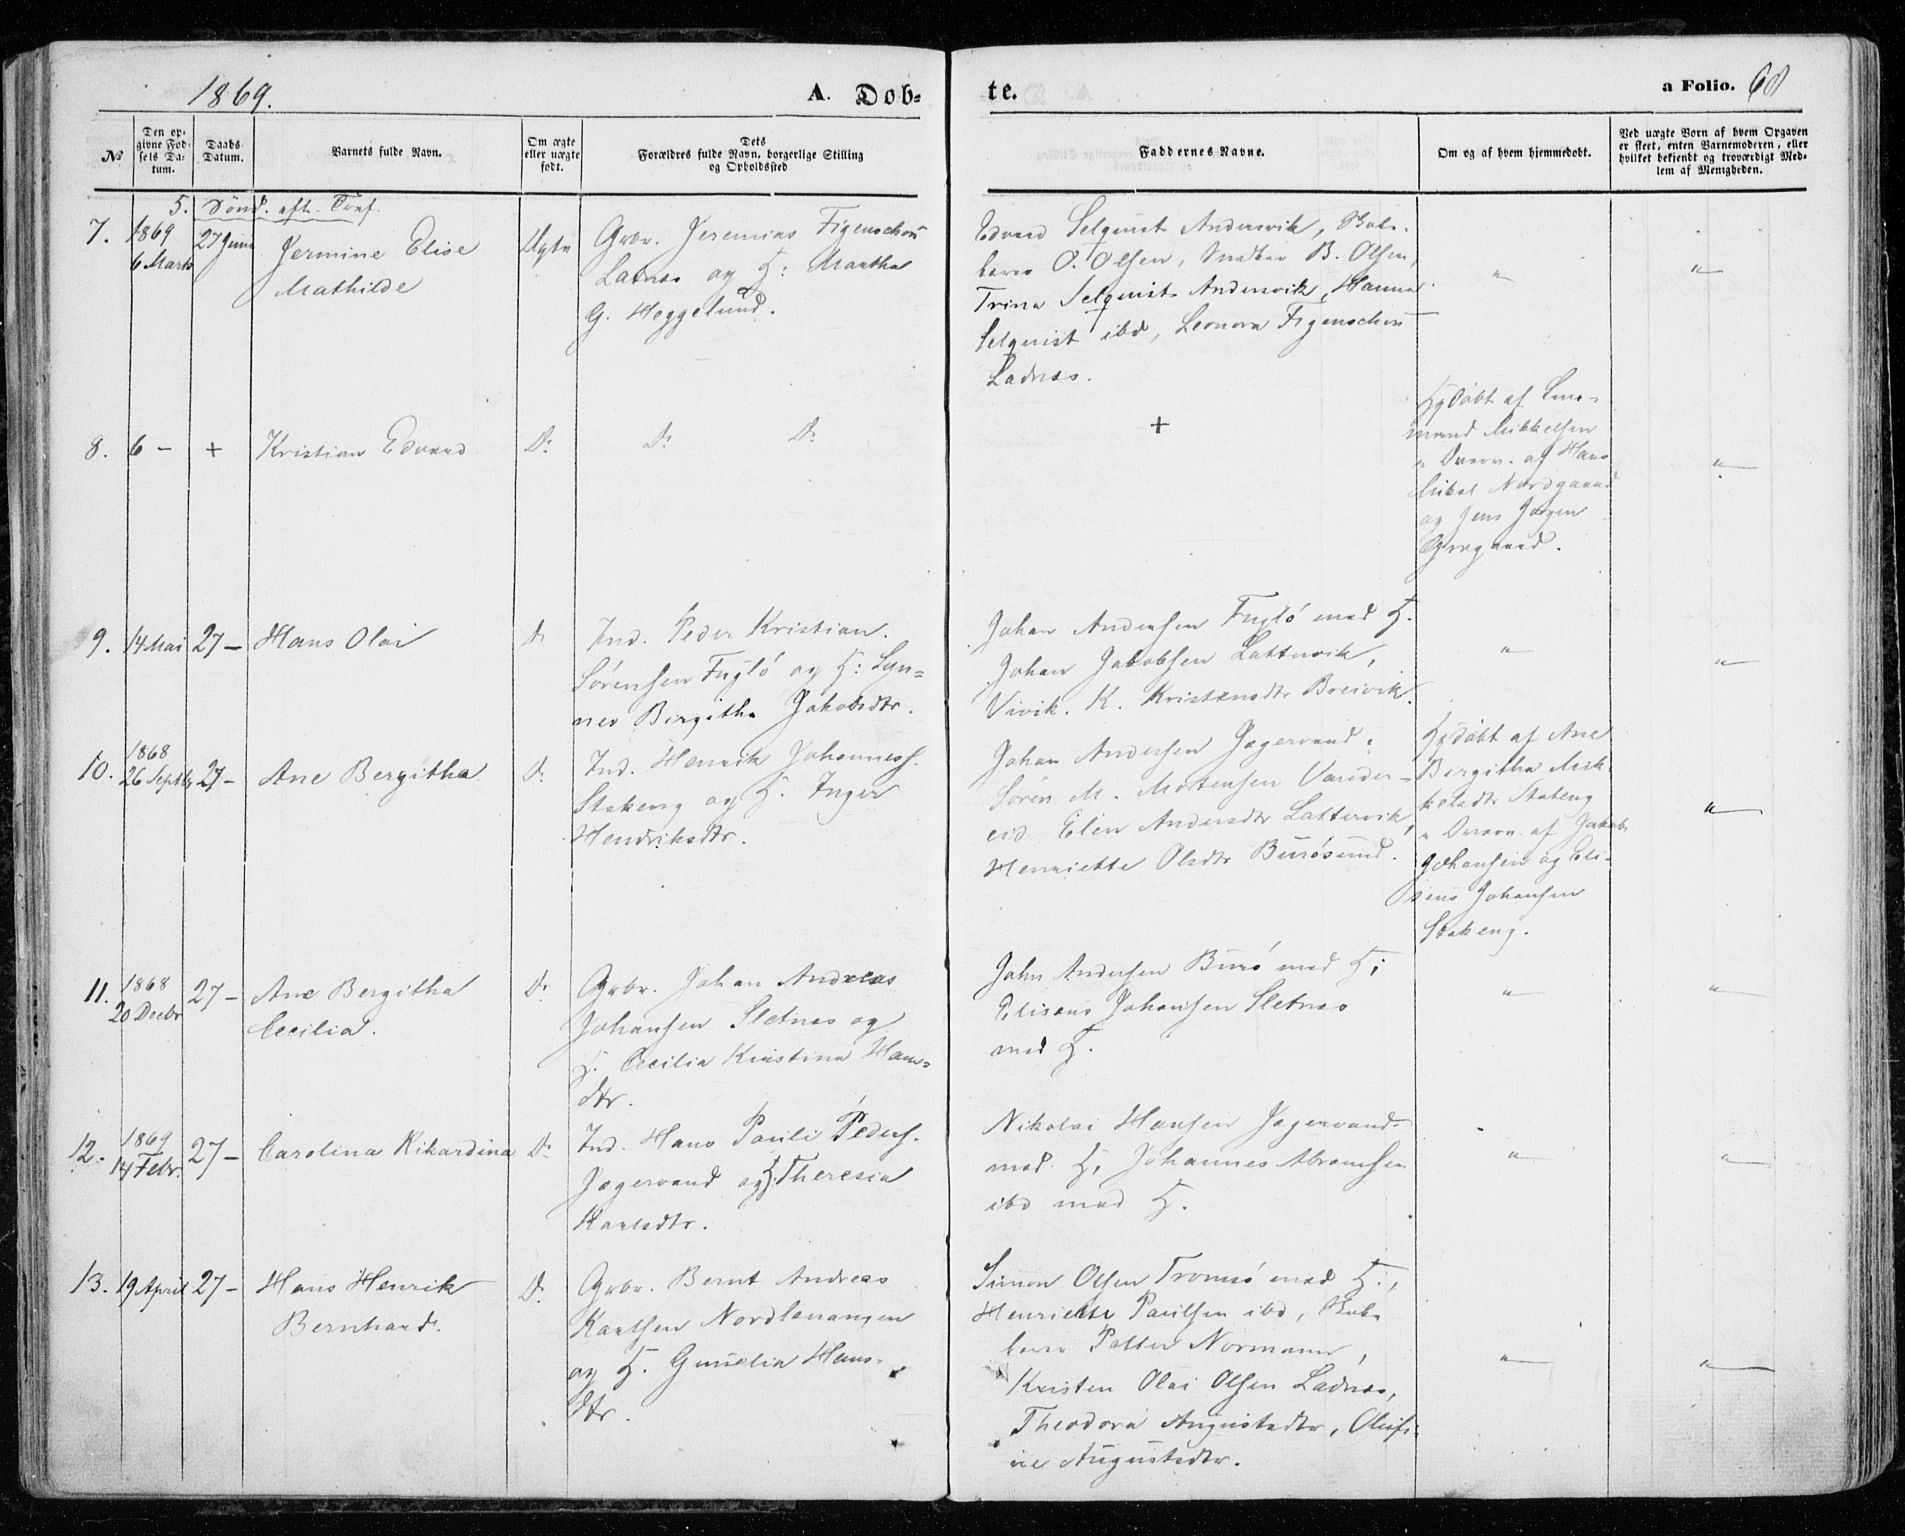 1869.
A. Døb-
te.
a Folio. 68
No
Den op-
givne Fød-
sels Da-
tum.
Daabs
Datum.
Barnets fulde Navn.
Om ægte
eller uægte
født.
Dets
Forældres fulde Navn, borgerlige Stilling
og Opholdssted
Faddernes Navne.
Om og af hvem hjemmedøbt.
Ved uægte Børn af hvem Opgaven
er skeet, enten Barnemoderen, eller
hvilket bekjendt og troværdigt Med-
lem af Menigheden.
5. Sønd. eft. Tref.
7.
1869
6 Marts
27 Juni
Jermine Elise
Mathilde
Ægte
Grbr. Jeremias Figenschou
Ladnæs og H: Martha
G. Heggelund.
Edvard Selqvist Andersvik,
O. Olsen, B. Olsen,
Trina Selqvist Andersvik, Hanna
Selqvist ibd, Leonora Figenschou
Ladnæs.
"
"
8.
6 -
+
Kristian Edvard
Do
Do Do
+
Hjdøbt af
Mikkelsen
af Hans
Mikal Nordgaard
og Jens Jørgen
"
9.
14 Mai
27 -
Hans Olai
Do
Ind. Peder Kristian
Sørensen Fuglö og H: Syn-
nev Birgitha Jakobsdtr.
Johan Andersen Fuglö med H.
Johan Jakobsen Lattervik,
Vivik. K. Kristensdtr Breivik.
"
"
10.
1868
26 Septbr
27 -
Ane Bergitha
Do
Ind. Henrik Johanness.
Stakeng og H. Inger
Hendriksdtr.
Johan Andersen Jægervand,
Søren M. Mortensen Vareder-
eid Elen Andersdtr Lattervik,
Henriette Olsdtr Burösund.
Hjdøbt af Ane
Birgitha Mik-
kelsdtr Stakeng
af Jakob
Johansen og Eli-
sæus Johansen
Stakeng.
"
11.
1868
20 Decbr
27 -
Ane Bergitha
Cecilia.
Do
Grbr. Johan Andreas
Johansen Sletnæs og
H. Cecilia Kristina Hans-
dtr.
John Andersen Burö med H;
Elisæus Johansen Sletnæs
med H.
"
"
12.
1869
14 Febr.
27 -
Carolina Rikardina
Do
Ind. Hans Pauli Peders.
Jægervand og H. Theresia
Karlsdtr.
Nikolai Hansen Jægervand
med H, Johannes Abramsen
ibd med H.
"
"
13.
19 April
27 -
Hans Henrik
Bernhard.
Do
Grbr. Bernt Andreas
Karlsen Nordlenangen
og H. Gunelia Hans-
dtr.
Simon Olsen Tromsö med H.,
Henriette Paulsen ibd,
Petter Normann,
Kristen Olai Olsen Ladnæs,
Theodora Augustsdtr, Olufi-
ne Augustsdtr.
"
"